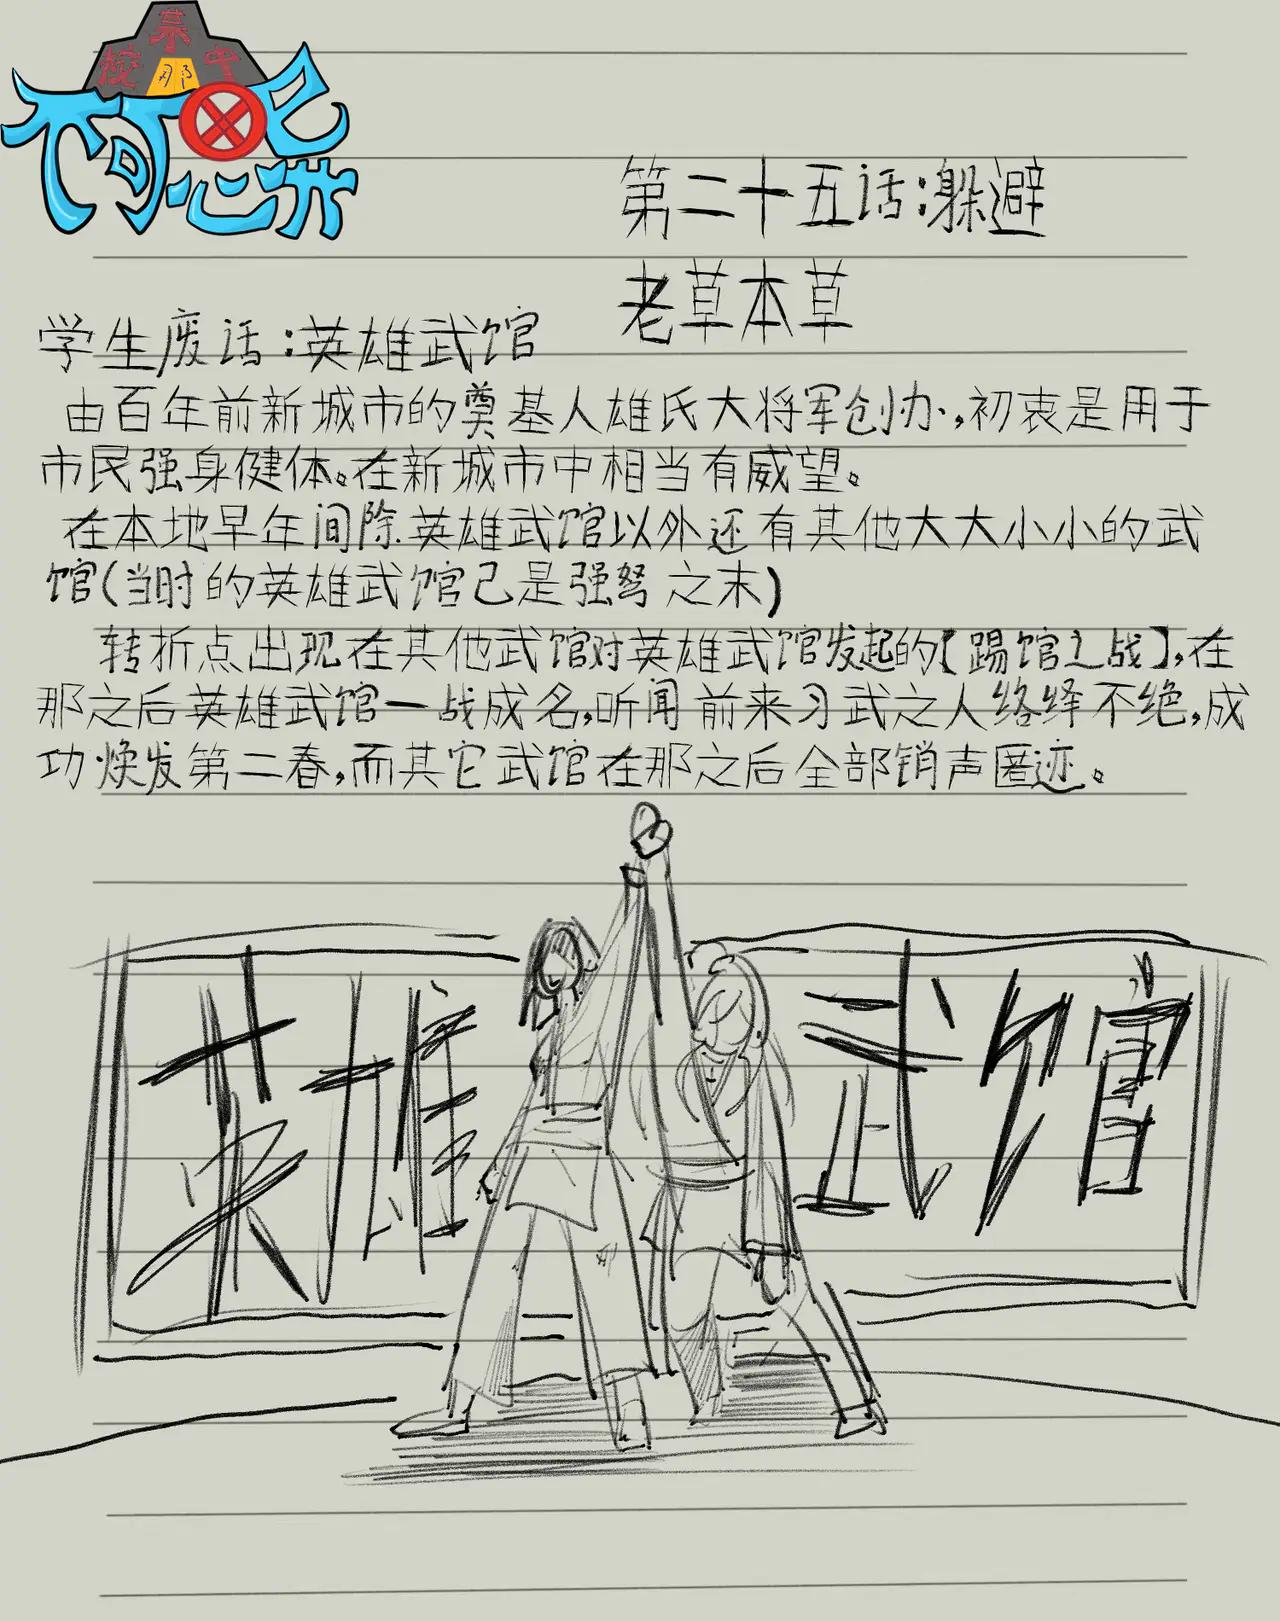 某中校那
不可思异
第二十五话:躲避
老草本草
学生废话:英雄武馆
由百年前新城市的奠基人雄氏大将军创办,初衷是用于
市民强身健体。在新城市中相当有威望。
在本地早年间除英雄武馆以外还有其他大大小小的武
馆(当时的英雄武馆己是强弩之末)
转折点出现在其他武馆对英雄武馆发起的【踢馆之战】,在
那之后英雄武馆一战成名,听闻前来习武之人络绎不绝,成
功焕发第二春,而其它武馆在那之后全部销声匿迹。
英雄武馆